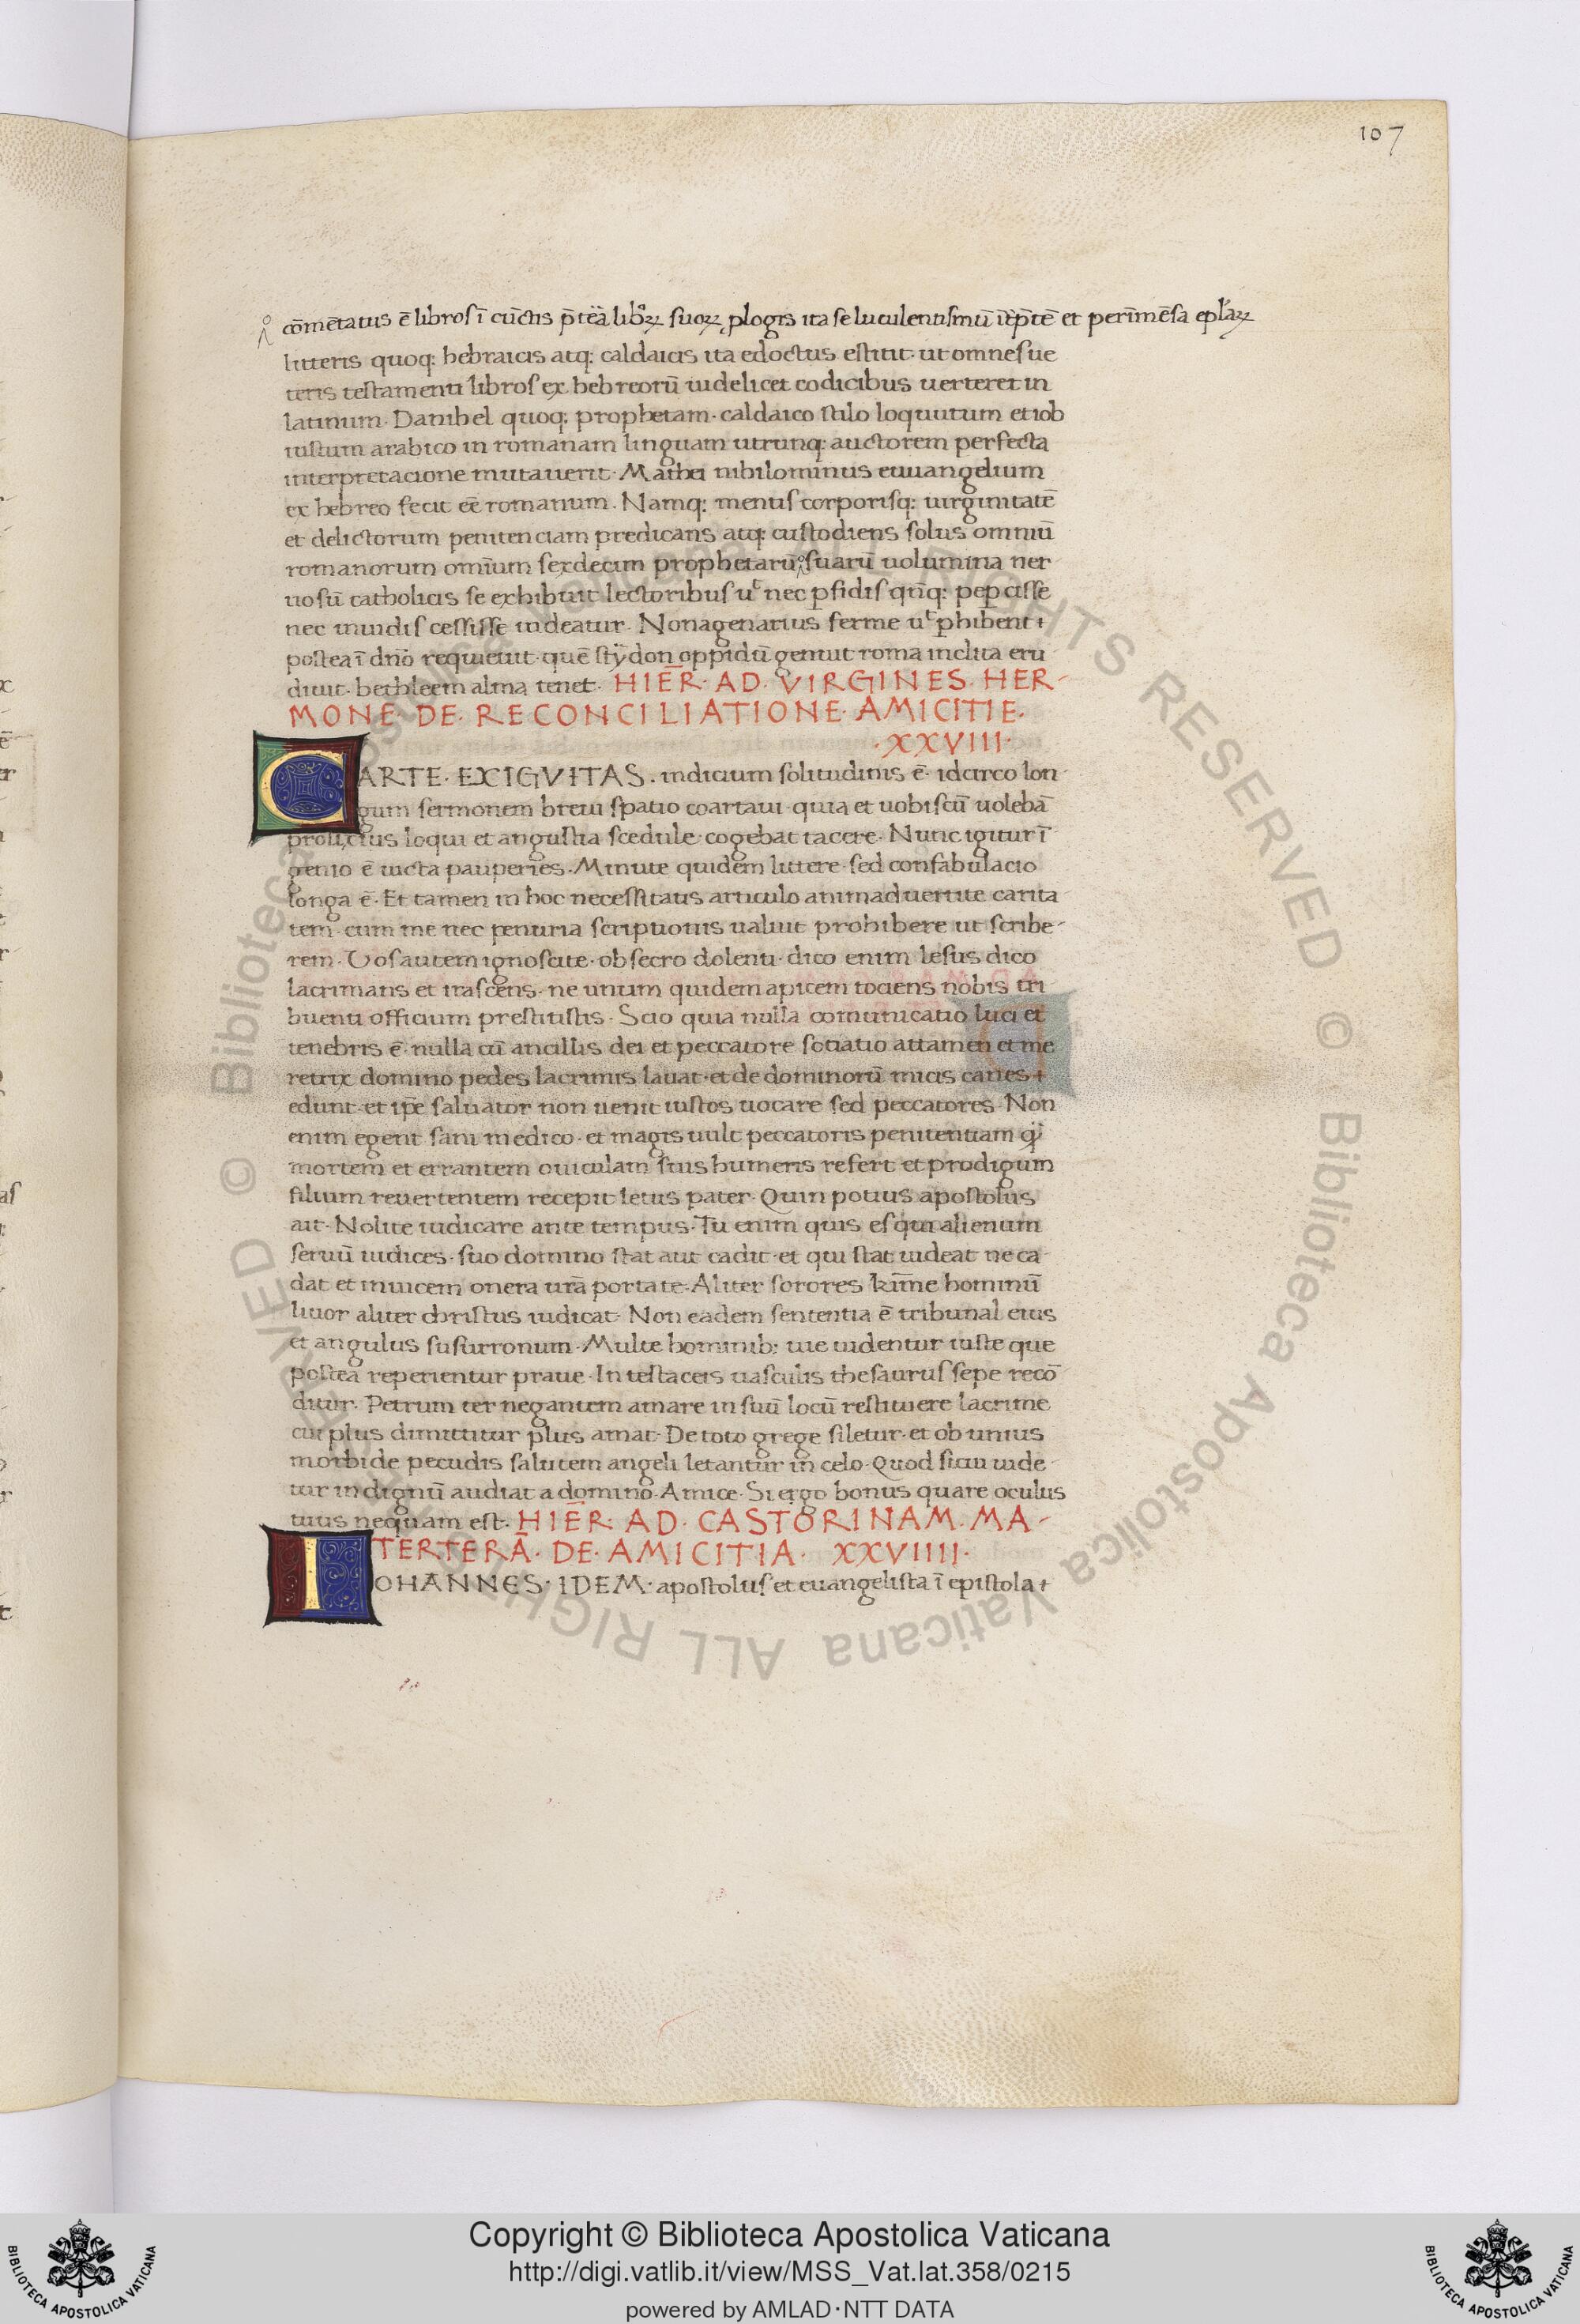 107
cōmētatus ē libros ī cūctis p̄tēa libꝝ suoꝝ plogis ita se luculentissmū īt̄p̄tē et perīmēsa eplaꝝ
litteris quoq: hebraicis atq: caldaicis ita edoctus estitit· ut omnes ue
teris testamenti libros ex hebreorū uidelicet codicibus uerteret in
latinum· Danihel quoq: prophetam· caldaico stilo loquutum et iob
iustum arabico in romanam linguam utrunq: auctorem perfecta
interpretacione mutauerit· Mathei nihilominus euuangelium
ex hebreo fecit eē romanum. Namq: mentis corporisq: uirginitatē
et delictorum penitenciam predicans atq: custodiens solus omniū
romanorum omīum sexdecim prophetarū suarū uolumina ner
uosū catholicis se exhibuit lectoribus ut nec pfidis qn̄q: pepcisse
nec inuidis cessisse uideatur· Nonagenarius ferme ut phibent
postea ī dn̄o requieuit· quē stydon oppidū genuit roma inclita eru
diuit· bethleem alma tenet· HIER̄· AD· VIRGINES· HER-
MONE· DE· RECONCILIATIONE· AMICITIE·
·XXVIII·
CARTE· EXIGVITAS· indicium solitudinis ē· idcirco lon
gum sermonem breui spatio coartaui· quia et uobiscū uolebā
prolixius loqui et angustia scedule· cogebat tacere· Nunc igitur ī
genio ē uicta pauperies· Minute quidem littere· sed confabulacio
longa ē· Et tamen in hoc necessitatis articulo animaduertite carita
tem· cum me nec penuria scriptionis ualuit prohibere ut scribe-
rem· Vos autem ignoscite· obsecro dolenti· dico enim lesus dico
lacrimans et irascens· ne unum quidem apicem tociens nobis tri
buenti officium prestitistis· Scio quia nulla comunicatio luci et
tenebris ē· nulla cū ancillis dei et peccatore sotiatio attamen et me
retrix domino pedes lacrimis lauat· et de dominorū micis canes
edunt· et ip̄e saluator non uenit iustos uocare sed peccatores· Non
enim egent sani medico· et magis uult peccatoris penitentiam q̄
mortem et errantem ouiculam suis humeris refert et prodigum
filium reuertentem recepit letus pater· Quin potius apostolus
ait· Nolite iudicare ante tempus· Tu enim quis es qui alienum
seruū iudices· suo domino stat aut cadit· et qui stat uideat ne ca
dat et inuicem onera ur̄a portate· Aliter sorores kīme hominū
liuor aliter christus iudicat· Non eadem sententia ē tribunal eius
et angulus susurronum· Multe hominib: uie uidentur iuste que
postea reperientur praue· In testaceis uasculis thesaurus sepe recō
ditur· Petrum ter negantem amare in suū locū restituere lacrime
cui plus dimittitur plus amat· De toto grege siletur· et ob unius
morbide pecudis salutem angeli letantur in celo· Quod sicui uide
tur indignū audiat a domino· Amice· Si ergo bonus quare oculus
tuus nequam est· HIER̄· AD· CASTORINAM· MA-
TERTERĀ· DE· AMICITIA· XXVIIII·
IOHANNES· IDEM· apostolus et euangelista ī epistola
© Biblioteca Apostolica Vaticana ALL RIGHTS RESERVED © Biblioteca Apostolica Vaticana ALL RIGHTS RESERVED
Copyright © Biblioteca Apostolica Vaticana
http://digi.vatlib.it/view/MSS_Vat.lat.358/0215
powered by AMLAD·NTT DATA
BIBLIOTECA APOSTOLICA VATICANA
BIBLIOTECA APOSTOLICA VATICANA